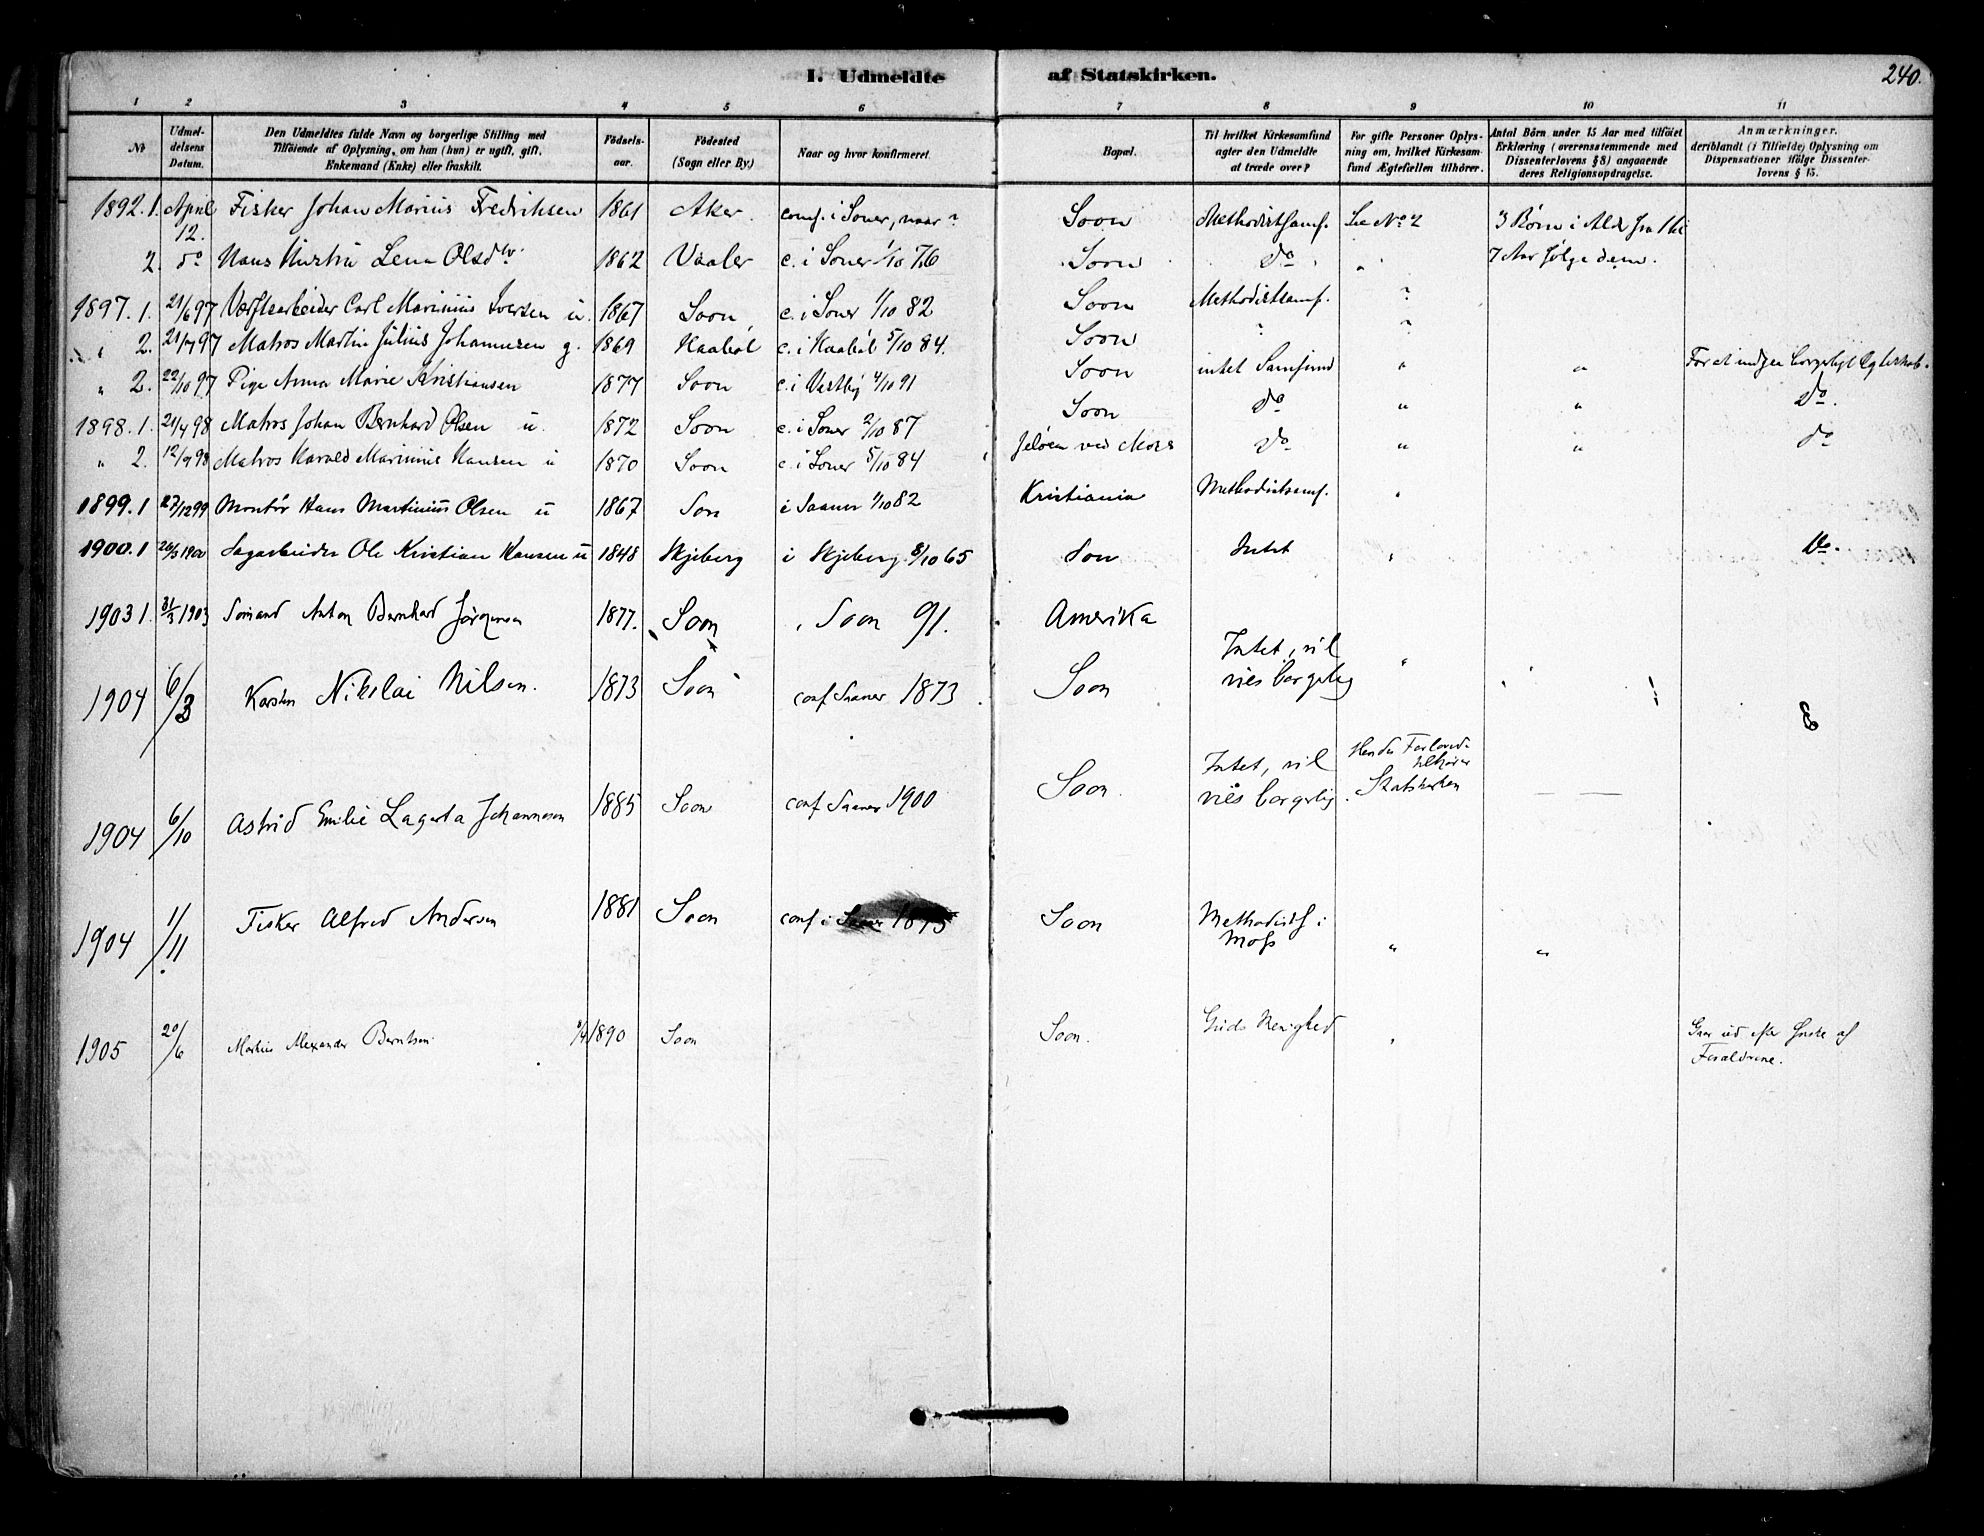 I. Udmeldte af Statskirken.
240.
1 2 3 4 5 6 7 8 9 10 11
№
Udmeldelsens Datum.
Den Udmeldtes fulde Navn og borgerlige Stilling med Tilføiende af Oplysning, om han (hun) er ugift, gift, Enkemand (Enke) eller fraskilt.
Fødselsaar.
Fødested (Sogn eller By.)
Naar og hvor konfirmeret.
Bopæl.
Til hvilket Kirkesamfund agter den Udmeldte at træde over?
For gifte Personer Oplysning om, hvilket Kirkesamfund Ægtefællen tilhører.
Antal Børn under 15 Aar med tilføiet Erklæring (overensstemmende med Dissenterlovens § 8) angaaende deres Religionsopdragelse.
Anmærkninger, deriblandt (i Tilfælde) Oplysning om Dispensationer ifølge Dissenterlovens § 15.
1892. 1. April 12. Fisker Johan Marius Fredriksen 1861 Aker. conf. i Soner, naar? Soon Methodistsamf. Se No 2 3 Børn i Ald. fra 1 til
2. do Hans Hustru Lena Olsdtr 1862 Vaaler c. i Soner 1/10 76 Soon do " 7 Aar følge dem.
1897. 1. 21/6 97 Værftsarbeider Carl Marinius Iversen u. 1867 Soon c. i Soner 1/10 82 Soon Methodistsamf. ?
" 2. 21/7 97 Matros Martin Julius Johannesen g. 1869 Haabøl c. i Haabøl 5/10 84. Soon ? ?
" 2. 22/10 97 Pige Anna Marie Kristiansen 1877 Soon c. i Vestby 4/10 91 Soon intet Samfund " " For at indgaa borgerligt Ægteskab.
1898. 1. 21/4 98 Matros Johan Bernhard Olsen u. 1872 Soon c. i Soner 2/10 87 Soon do " " do.
" 2. 12/9 98 Matros Harald Marinius Hansen u 1870 Soon c. i Soner 5/10 84 Jeløen ved Moss do " " do
1899. 1 27/12 99 Montør Hans Martinius Olsen u 1867 Son i Saaner 1/10 82 Kristiania Methodistsamf. "
1900. 1 26/3 1900 Sagarbeider Ole Kristian Hansen u 1848 Skjeberg i Skjeberg 8/10 65 Son Intet " do.
1903 1. 31/3 1903 Sømand Anton Bernhard Jørgensen 1877. Soon " Soon 91. Amerika
1904 6/3 Karsten Nikolai Nilsen. 1873 Soon conf Saaner 1873 Soon Intet, vil vies borgerlig "
1904 6/10 Astrid Emilie Lagerta Johannesen 1885 Soon conf Saaner 1900 Soon. Intet, vil vies borgerlig. Hendes Forlovede tilhører Statskirken — —
1904 1/11 Fisker Alfred Andersen 1881 Soon conf i Saaner 1895 Soon Methodistsf i Moss " "
1905 20/6 Marius Alexander Berntsen 1890 Soon Soon. Guds Menighed " Gaar ud efter Ønske af Forældrene.